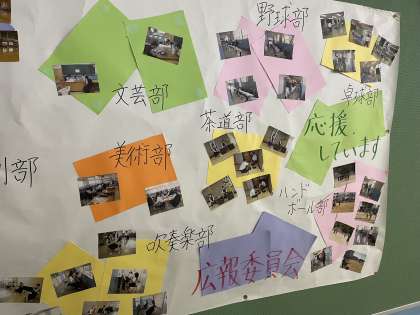 野球部
文芸部
卓球部
茶道部
応援
しています
美術部
ハンド
ボール部
吹奏楽部
広報委員会